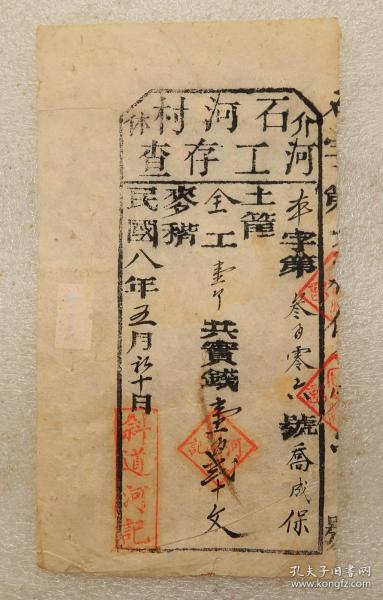 介石河村休
河工存查
本字第叁百零六號喬成保
土籠
仝工壹个 共實錢壹百貳十文
麥稭
民國八年五月初十日
斜道河記
孔夫子旧书网
www.kongfz.com